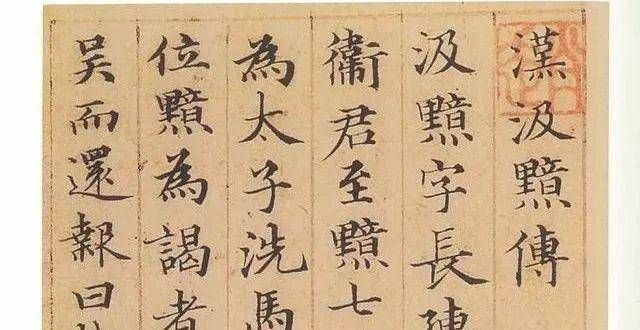 漢汲黯傳
汲黯字長
衛君至黯七
為太子洗馬
位黯為謁者
吳而還報曰